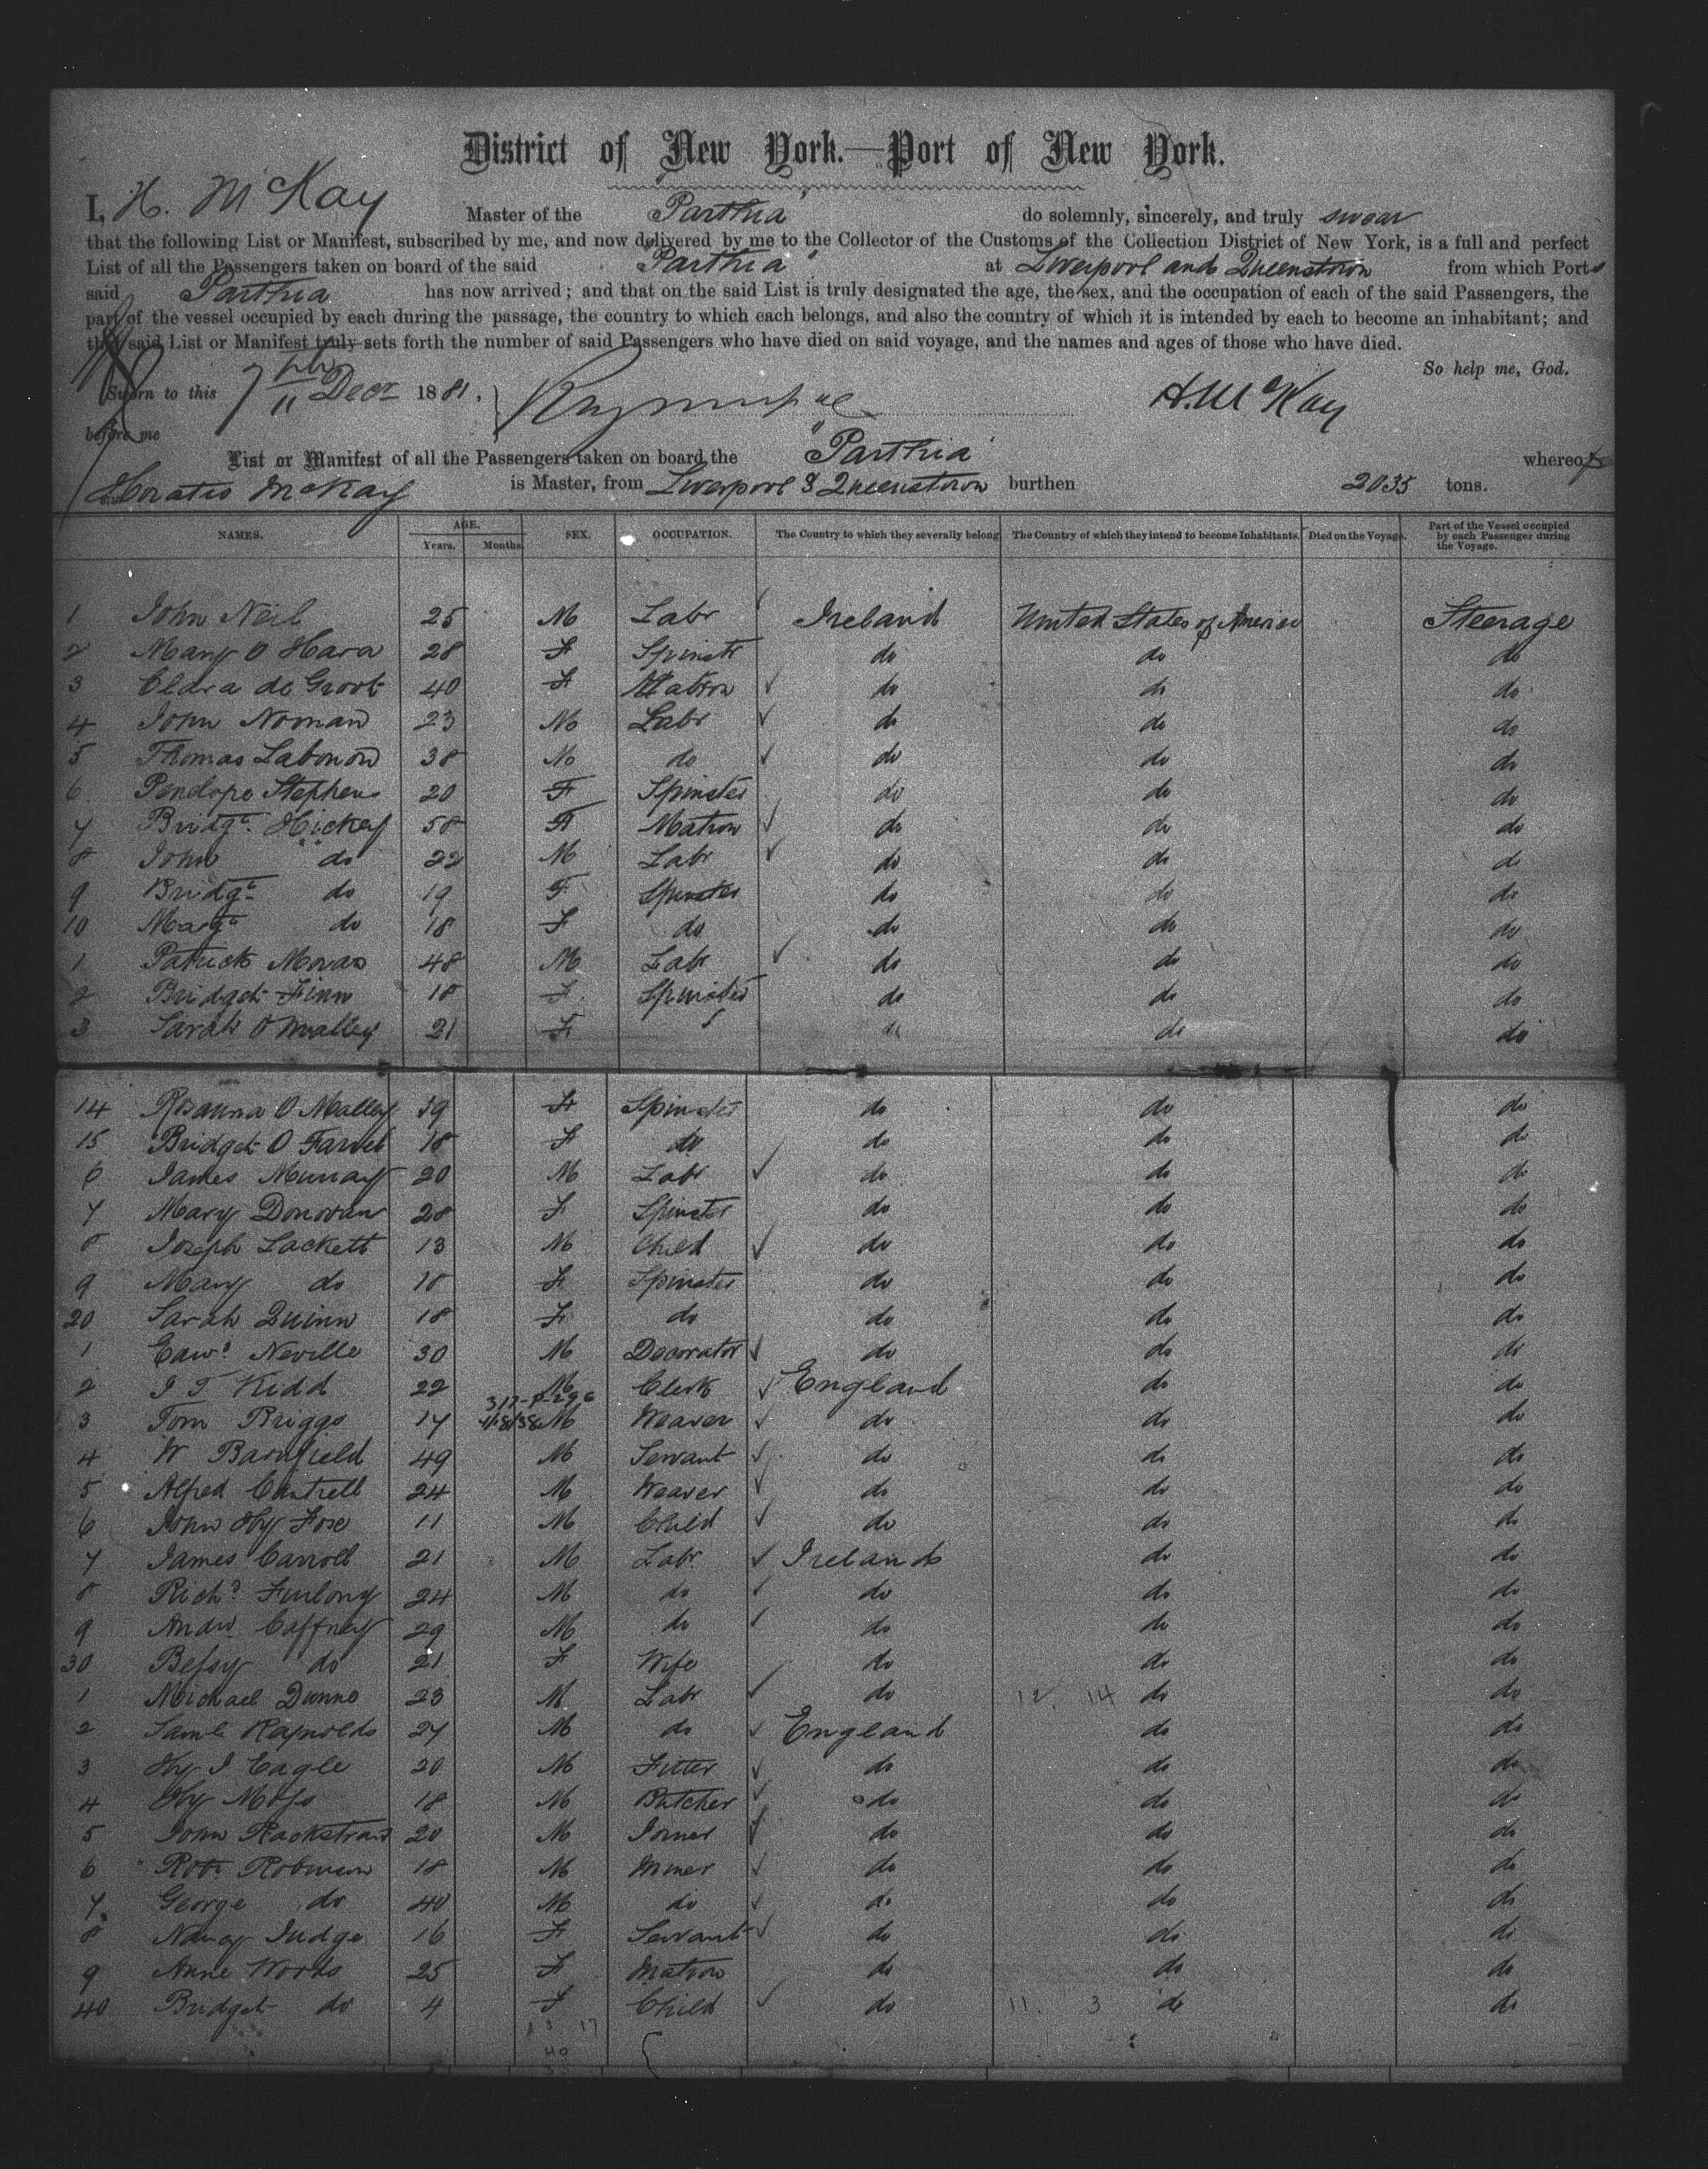 District of New York.—Port of New York.
I, H. McKay Master of the "Parthia" do solemnly, sincerely, and truly swear
that the following List or Manifest, subscribed by me, and now delivered by me to the Collector of the Customs of the Collection District of New York, is a full and perfect
List of all the Passengers taken on board of the said "Parthia" at Liverpool and Queenstown from which Ports
said Parthia has now arrived; and that on the said List is truly designated the age, the sex, and the occupation of each of the said Passengers, the
part of the vessel occupied by each during the passage, the country to which each belongs, and also the country of which it is intended by each to become an inhabitant; and
that said List or Manifest truly sets forth the number of said Passengers who have died on said voyage, and the names and ages of those who have died.
So help me, God.
Sworn to this 7th Decr 1881. H. McKay
before me
List or Manifest of all the Passengers taken on board the "Parthia" whereof
Horatio McKay is Master, from Liverpool & Queenstown burthen 2035 tons.
NAMES. AGE. Years. Months. SEX. OCCUPATION. The Country to which they severally belong. The Country of which they intend to become Inhabitants. Died on the Voyage. Part of the Vessel occupied by each Passenger during the Voyage.
1 John Neil 25 M Labr Ireland United States of America Steerage
2 Mary O Hara 28 F Spinstr do do do
3 Clara de Groot 40 F Matron do do do
4 John Noman 23 M Labr do do do
5 Thomas 38 M do do do do
6 Penelope Stephens 20 F Spinster do do do
7 Bridgt. Hickey 58 F Matron do do do
8 John do 22 M Labr do do do
9 Bridgt do 19 F Spinster do do do
10 Margt do 18 F do do do do
1 Patrick Moran 48 M Labr do do do
2 Bridget Finn 18 F Spinster do do do
3 Sarah O Malley 21 F do do do
14 Rosanna O Malley 19 F Spinster do do do
15 Bridget O Farrell 18 F do do do do
6 James Murray 20 M Labr do do do
7 Mary Donovan 28 F Spinster do do do
8 Joseph Lackett 13 M Child do do do
9 Mary do 18 F Spinster do do do
20 Sarah Quinn 18 F do do do do
1 Edwd Neville 30 M Decorator do do do
2 J T Kidd 22 M Clerk England do do
3 Tom Briggs 17 M Weaver do do do
4 W Barnfield 49 M Servant do do do
5 Alfred Cantrell 24 M Weaver do do do
6 John Hy Fose 11 M Child do do do
7 James Carroll 21 M Labr Ireland do do
8 Richd Furlong 24 M do do do do
9 Andw Caffney 29 M do do do do
30 Bessy do 21 F Wife do do do
1 Michael Dunne 23 M Labr do 12 14 do do
2 Saml Reynolds 27 M do England do do
3 Hy J Eagle 20 M Fitter do do do
4 Hy Moss 18 M Butcher do do do
5 John Rackstraw 20 M Joiner do do do
6 Robt Robinson 18 M Miner do do do
7 George do 40 M do do do do
8 Nancy Judge 16 F Servant do do do
9 Anne Woods 25 F Matron do do do
40 Bridget do 4 F Child do 11. 3 do do